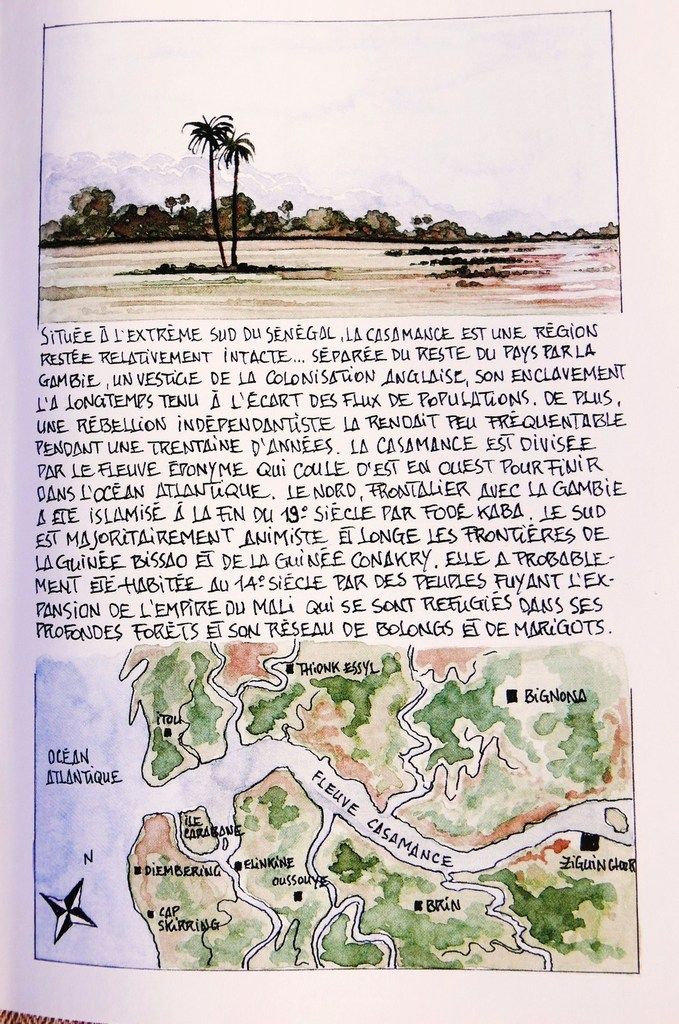 SITUÉE À L'EXTRÊME SUD DU SÉNÉGAL, LA CASAMANCE EST UNE RÉGION
RESTÉE RELATIVEMENT INTACTE... SÉPARÉE DU RESTE DU PAYS PAR LA
GAMBIE, UN VESTIGE DE LA COLONISATION ANGLAISE, SON ENCLAVEMENT
L'A LONGTEMPS TENU À L'ÉCART DES FLUX DE POPULATIONS. DE PLUS,
UNE RÉBELLION INDÉPENDANTISTE LA RENDAIT PEU FRÉQUENTABLE
PENDANT UNE TRENTAINE D'ANNÉES. LA CASAMANCE EST DIVISÉE
PAR LE FLEUVE ÉPONYME QUI COULE D'EST EN OUEST POUR FINIR
DANS L'OCÉAN ATLANTIQUE. LE NORD, FRONTALIER AVEC LA GAMBIE
A ÉTÉ ISLAMISÉ À LA FIN DU 19e SIÈCLE PAR FODÉ KABA. LE SUD
EST MAJORITAIREMENT ANIMISTE ET LONGE LES FRONTIÈRES DE
LA GUINÉE BISSAO ET DE LA GUINÉE CONAKRY. ELLE A PROBABLE-
MENT ÉTÉ HABITÉE AU 14e SIÈCLE PAR DES PEUPLES FUYANT L'EX-
PANSION DE L'EMPIRE DU MALI QUI SE SONT REFUGIÉS DANS SES
PROFONDES FORÊTS ET SON RÉSEAU DE BOLONGS ET DE MARIGOTS.
THIONK ESSYL
BIGNONA
ITOU
OCÉAN
ATLANTIQUE
FLEUVE CASAMANCE
ÎLE
CARABANE
ZIGUINCHOR
N
DIEMBERING
ELINKINE
OUSSOUYE
CAP
SKIRRING
BRIN